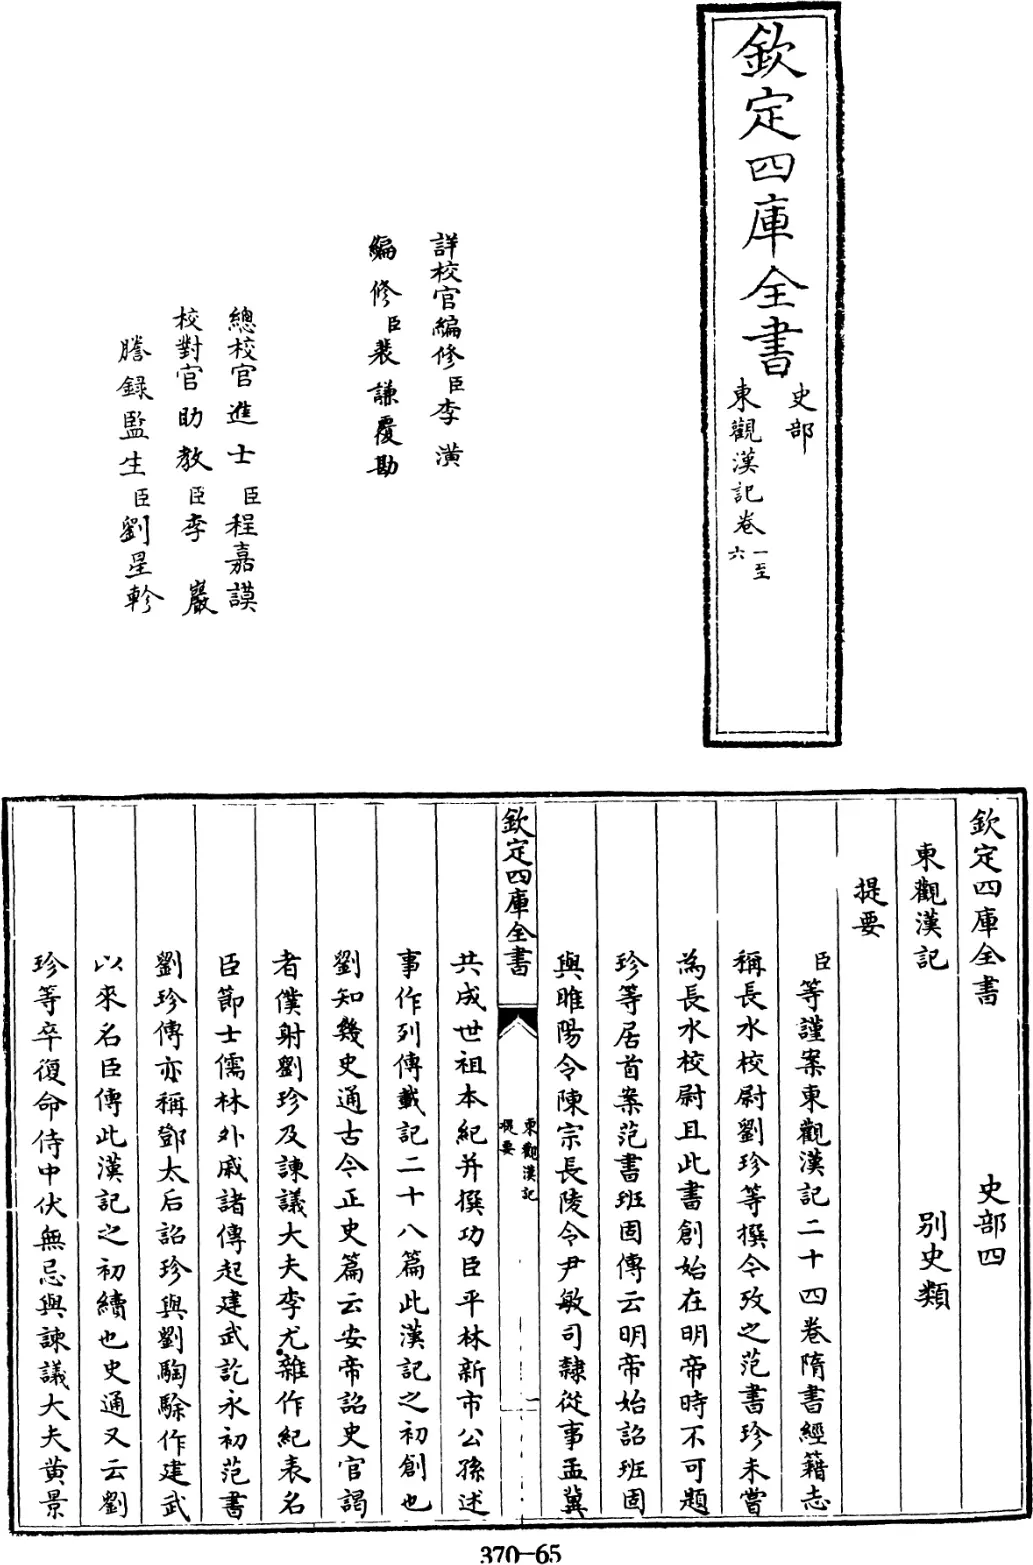 欽定四庫全書
史部
東觀漢記卷一至六
詳校官編修臣李潢
編修臣裴謙覆勘
總校官進士臣程嘉謨
校對官助教臣李巖
謄録監生臣劉星軫
欽定四庫全書 史部四
東觀漢記 别史類
提要
臣等謹案東觀漢記二十四卷隋書經籍志
稱長水校尉劉珍等撰今攷之范書珍未嘗
為長水校尉且此書創始在明帝時不可題
珍等居首案范書班固傳云明帝始詔班固
與睢陽令陳宗長陵令尹敏司隸從事孟冀
欽定四庫全書
東觀漢記
提要
一
共成世祖本紀并撰功臣平林新市公孫述
事作列傳載記二十八篇此漢記之初創也
劉知幾史通古今正史篇云安帝詔史官謁
者僕射劉珍及諫議大夫李尤雜作紀表名
臣節士儒林外戚諸傳起建武訖永初范書
劉珍傳亦稱鄧太后詔珍與劉騊駼作建武
以來名臣傳此漢記之初續也史通又云劉
珍等卒復命侍中伏無忌與諫議大夫黄景
370-65